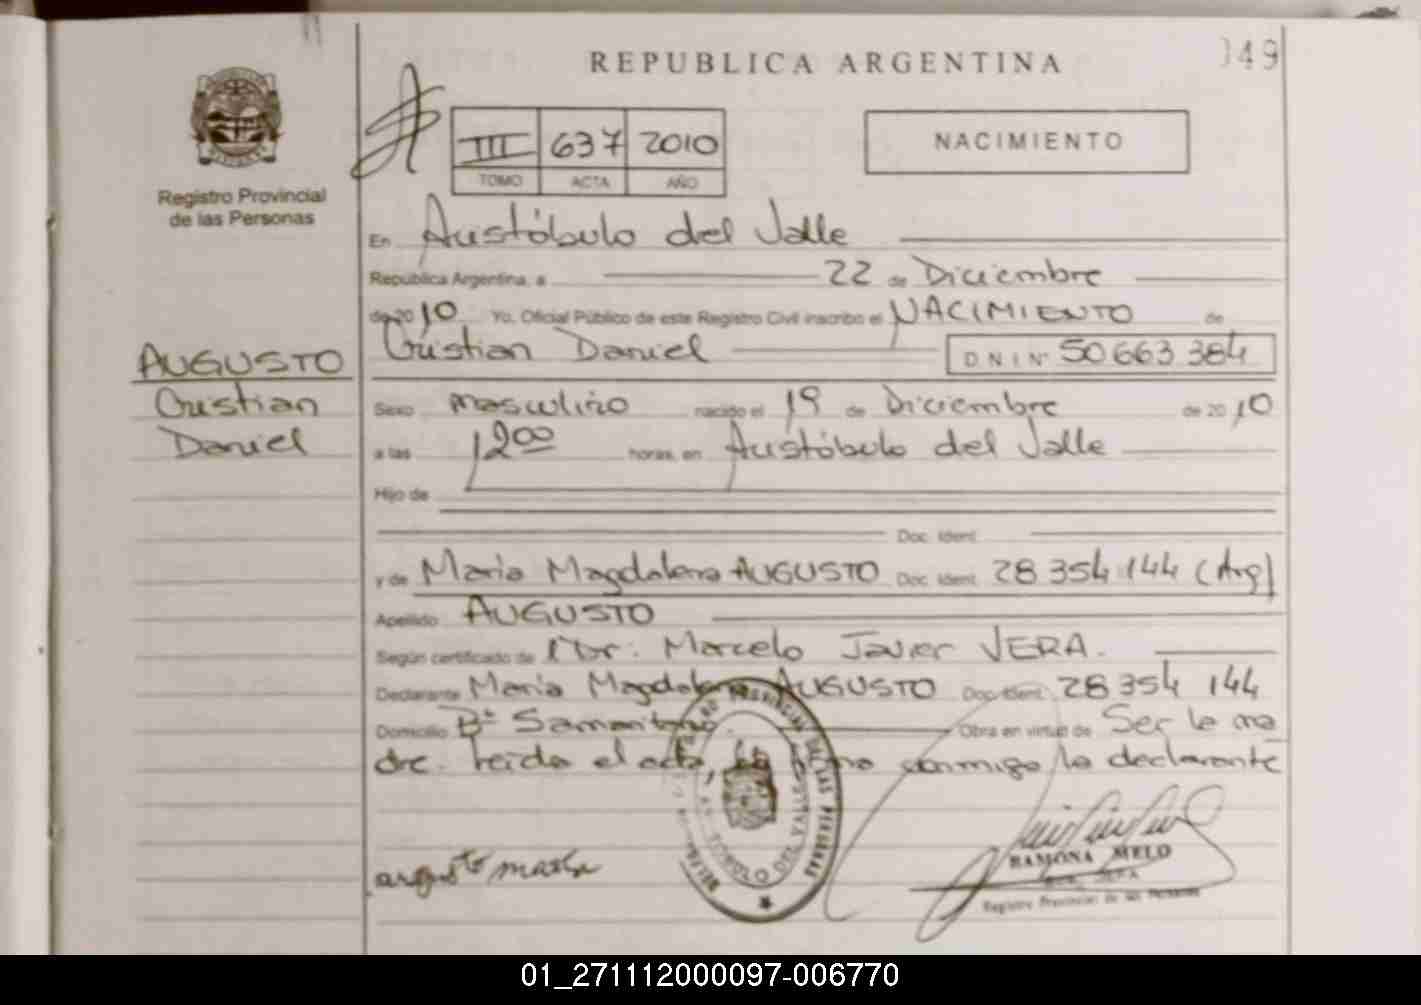 REPUBLICA ARGENTINA
049
Registro Provincial
de las Personas
III 637 2010
TOMO ACTA AÑO
NACIMIENTO
En Aristóbulo del Valle
República Argentina, a 22 de Diciembre
de 2010 Yo, Oficial Público de este Registro Civil inscribo el NACIMIENTO de
Cristian Daniel DNI Nº 50 663 384
AUGUSTO
Cristian
Daniel
Sexo masculino nacido el 19 de Diciembre de 2010
a las 12 00 horas, en Aristóbulo del Valle
Hijo de
Doc. Ident.
y de Maria Magdalena AUGUSTO Doc. Ident. 28 354 144 (Arg)
Apellido AUGUSTO
Según certificado de Dr. Marcelo Javier VERA.
Declarante Maria Magdalena AUGUSTO Doc. Ident. 28 354 144
Domicilio Bº Obra en virtud de Ser la ma
dre. Leída el acta, la conmigo la declarante
RAMONA MELO
Registro Provincial de las Personas
REGISTRO PROVINCIAL DE LAS PERSONAS
01_271112000097-006770